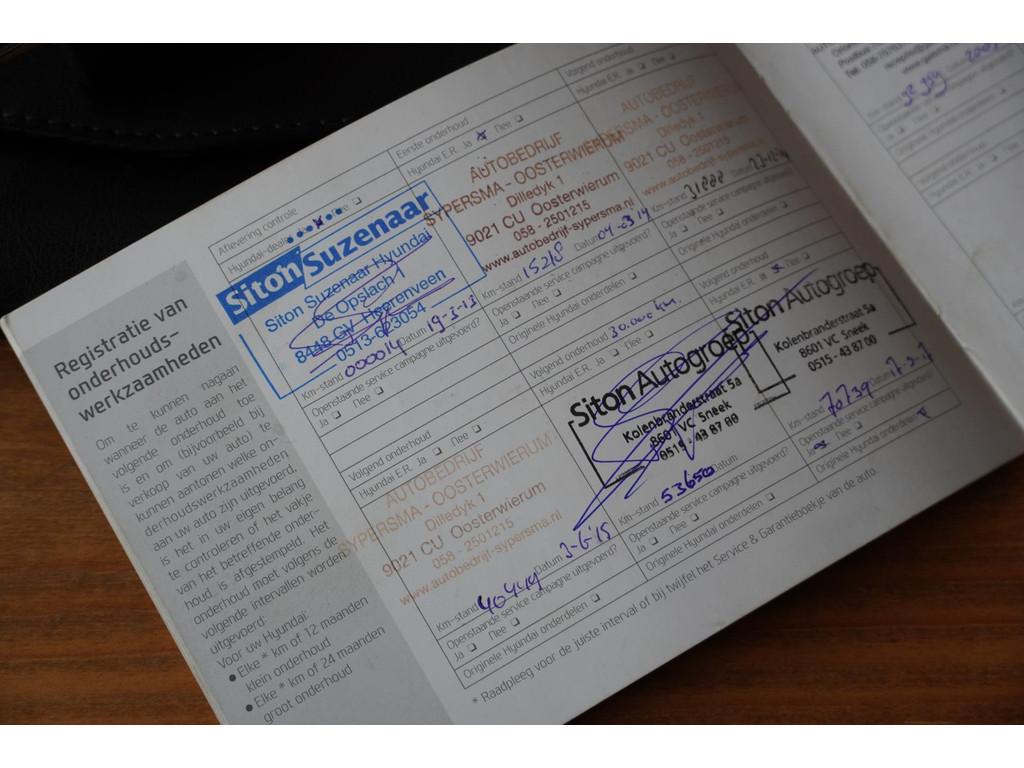 Registratie van
onderhouds-
werkzaamheden
Om te kunnen nagaan
wanneer de auto aan het
volgende onderhoud toe
is en om (bijvoorbeeld bij
verkoop van uw auto) te
kunnen aantonen welke on-
derhoudswerkzaamheden
aan uw auto zijn uitgevoerd,
is het in uw eigen belang
te controleren of het vakje
van het betreffende onder-
houd, is afgestempeld. Het
onderhoud moet volgens de
volgende intervallen worden
uitgevoerd:
Voor uw Hyundai:
• Elke * km of 12 maanden
klein onderhoud
• Elke * km of 24 maanden
groot onderhoud
Aflevering controle
Hyundai-dealer
Siton Suzenaar
Siton Suzenaar Hyundai
De Opslach 1
8448 GV Heerenveen
0513-623054
Km-stand 000014 Datum 19-3-13
Openstaande service campagne uitgevoerd?
Ja Nee
Eerste onderhoud
Hyundai E.R. Ja Nee
AUTOBEDRIJF
SYPERSMA - OOSTERWIERUM
Dilledyk 1
9021 CU Oosterwierum
058 - 2501215
www.autobedrijf-sypersma.nl
Km-stand 15218 Datum 04-03-14
Openstaande service campagne uitgevoerd?
Ja Nee
Originele Hyundai onderdelen
Volgend onderhoud
Hyundai E.R. Ja Nee
AUTOBEDRIJF
SYPERSMA - OOSTERWIERUM
Dilledyk 1
9021 CU Oosterwierum
058 - 2501215
www.autobedrijf-sypersma.nl
Km-stand Datum
Openstaande service campagne uitgevoerd?
Ja Nee
Originele Hyundai onderdelen
Volgend onderhoud
Hyundai E.R. Ja Nee
AUTOBEDRIJF
SYPERSMA - OOSTERWIERUM
Dilledyk 1
9021 CU Oosterwierum
058 - 2501215
www.autobedrijf-sypersma.nl
Km-stand 40449 Datum 3-6-15
Openstaande service campagne uitgevoerd?
Ja Nee
Originele Hyundai onderdelen
Volgend onderhoud 30.000 km
Hyundai E.R. Ja Nee
Siton Autogroep
Kolenbranderstraat 5a
8601 VC Sneek
0515 - 43 87 00
Km-stand 53650 Datum
Openstaande service campagne uitgevoerd?
Ja Nee
Originele Hyundai onderdelen
Volgend onderhoud
Hyundai E.R. Ja Nee
Siton Autogroep
Kolenbranderstraat 5a
8601 VC Sneek
0515 - 43 87 00
Km-stand 70739 Datum
Openstaande service campagne uitgevoerd?
Ja Nee
Originele Hyundai onderdelen
* Raadpleeg voor de juiste interval of bij twijfel het Service & Garantieboekje van de auto.